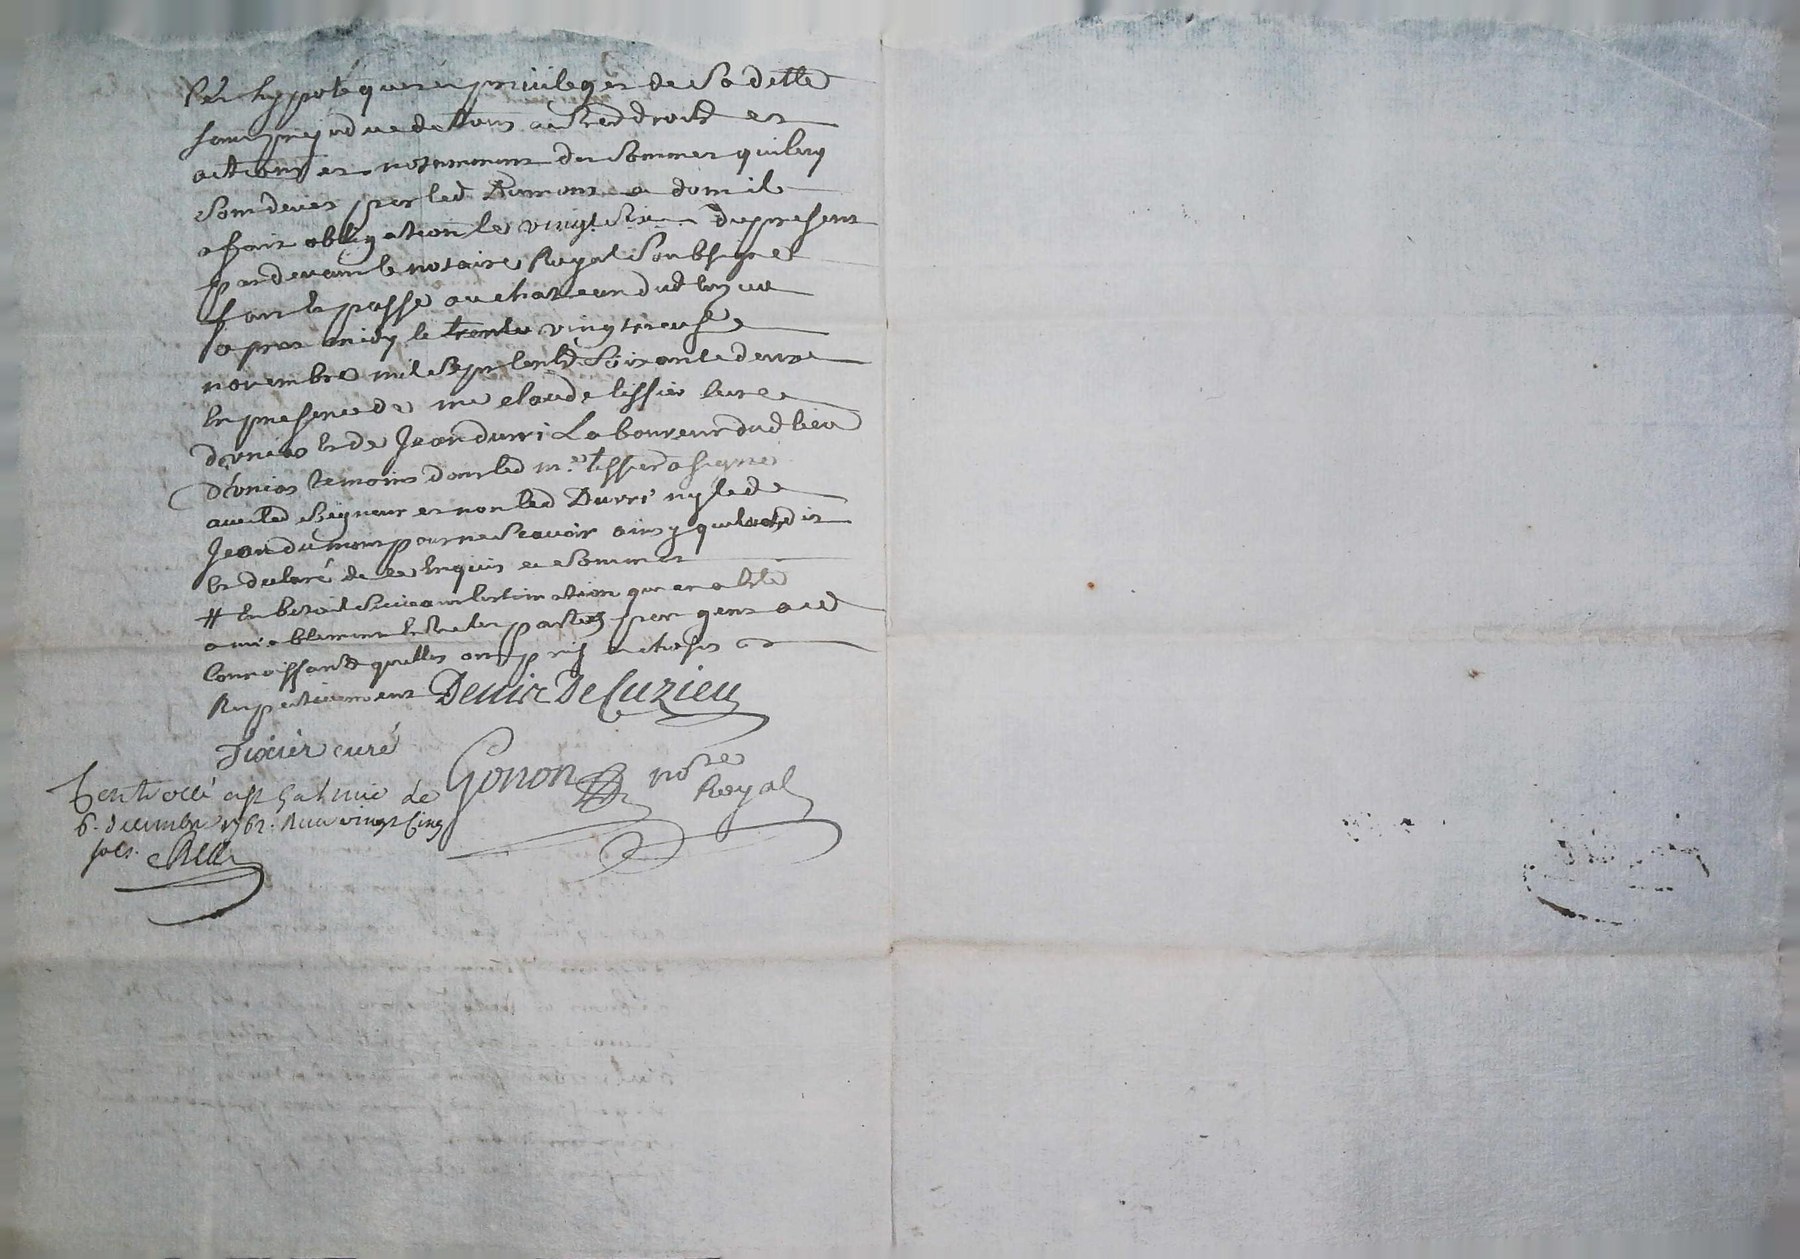 ses hypoteques et privileges de sa dette
sans prejudice de tous autres droits et
actions et notamment des sommes qui luy
sont deues par led Dumont a dom il
a fait obligation le vingt six du present
pardevant le notaire Royal soubsigné
fait et passé au chateau dud
apres midy le trente vingt neuf
novembre mil sept cents soixante deux
en presence de me claude tissier curé
d'eunias et de Jean durri Laboureur dud lieu
d'eunias temoins dont led me tissier a signé
avec led seigneur et non led Durri ny led
Jean dumont pour ne scavoir ainsy quils ont dit
et declaré de ce enquis et sommés
# en betail suivant lestimation qui en a eté
amiablement entre les parties par gens a ce
connoissants quelles ont pris et choisis
Respectivement Denis De Cuzieu
Tixier curé
Gonon nore
Royal
Controllé a st galmie le
6. decembre 1762. Reçu vingt cinq
sols.